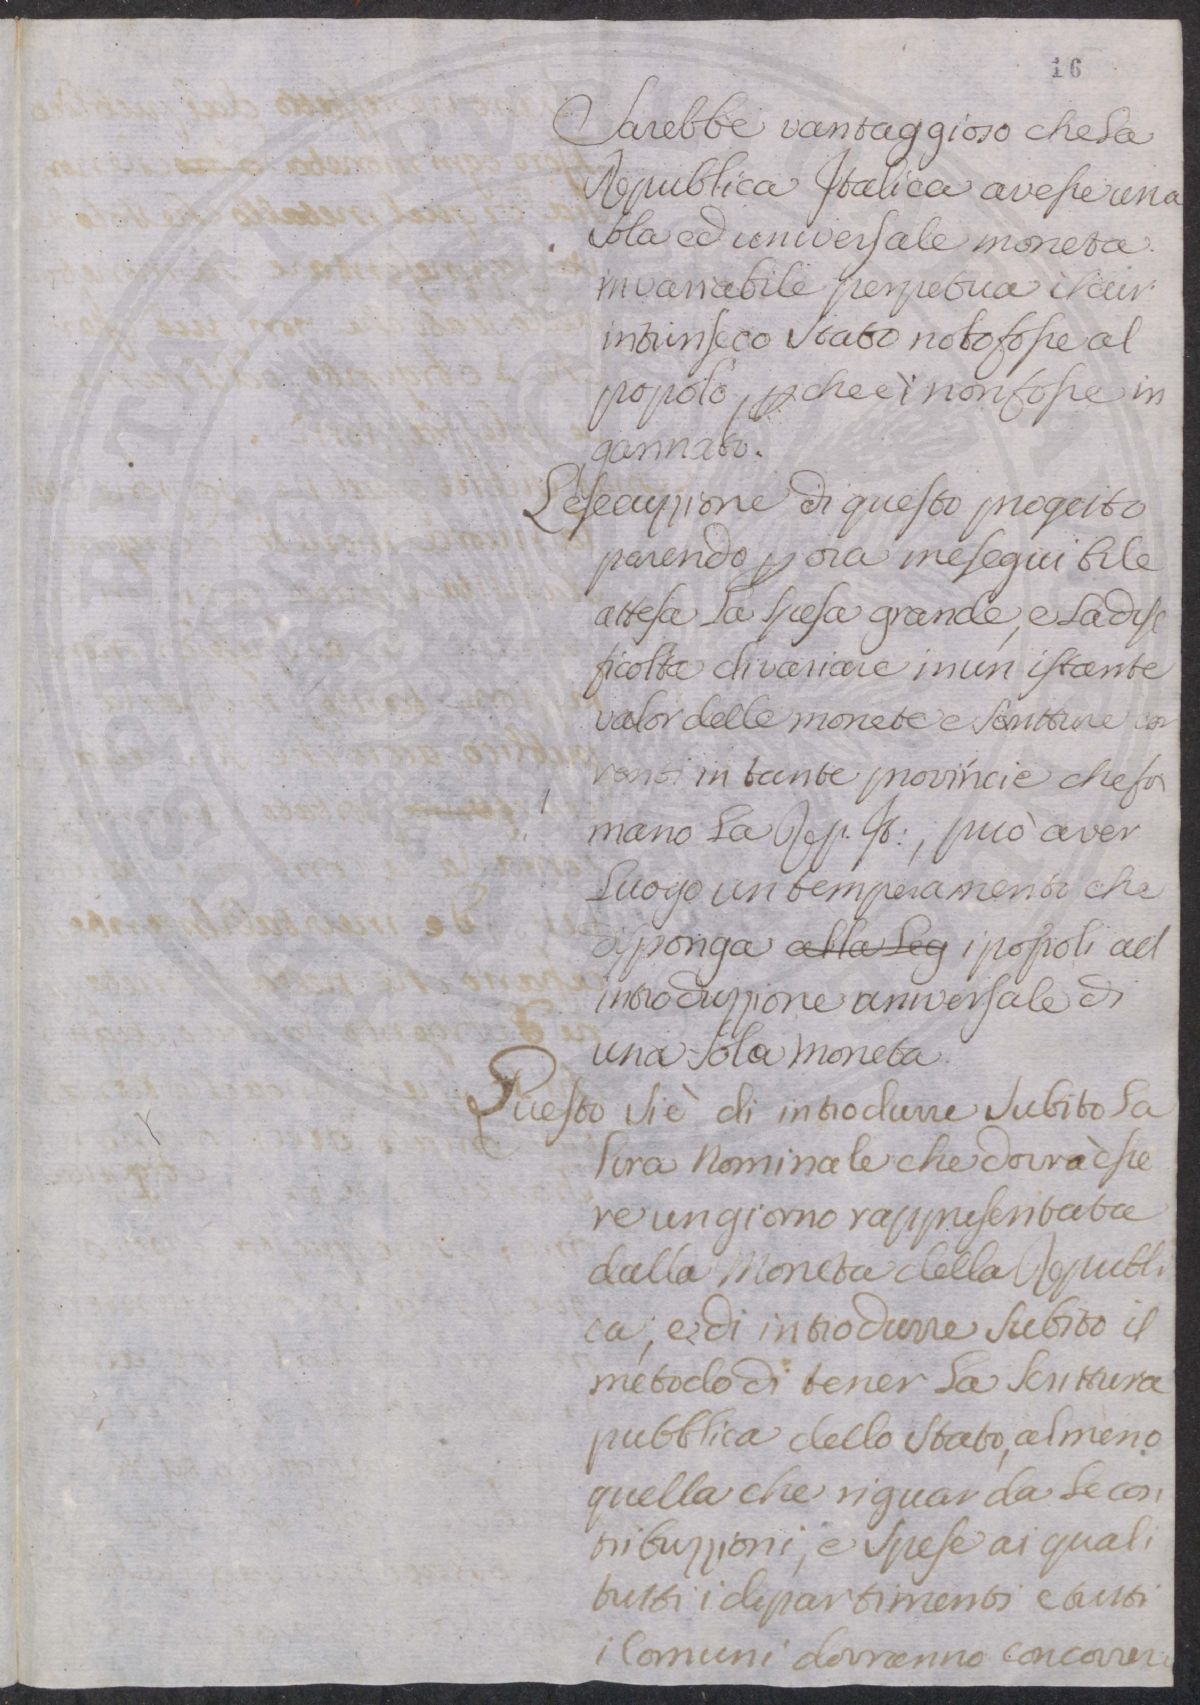 16
Sarebbe vantaggioso che la
Republica Italica avesse una
sola ed universale moneta
invariabile perpetua il cui
intrinseco stato noto fosse al
popolo, pche ei non fosse in
gannato.
L'esecuzzione di questo progetto
parendo p ora ineseguibile
attesa la spesa grande, e la dif
ficoltà di variare in un istante
valor delle monete e scritture cor
renti in tante provincie che for
mano la Rep. It:, può aver
luogo un temperamento che
disponga alla Leg i popoli ad
introduzzione universale di
una sola moneta.
Questo si è di introdurre subito la
lira nominale che dovrà esse
re un giorno rappresentata
dalla Moneta della Republi
ca, e di introdurre subito il
metodo di tener la scrittura
pubblica dello stato, almeno
quella che riguarda le con
tribuzzioni, e spese ai quali
tutti i dipartimenti e tutti
i Comuni dovranno concorrere